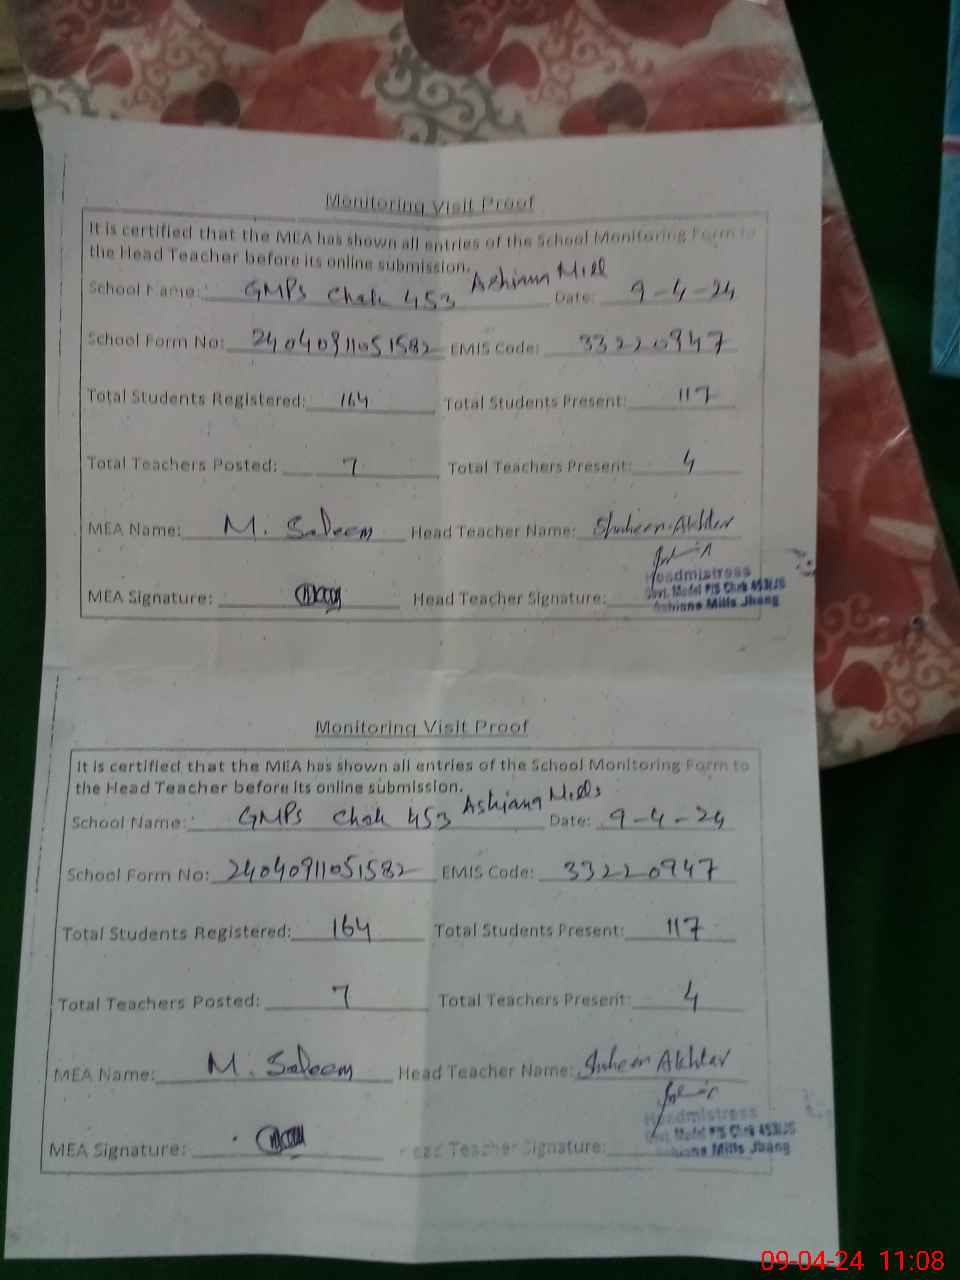 Monitoring Visit Proof
It is certified that the MEA has shown all entries of the School Monitoring Form to
the Head Teacher before its online submission.
School Name: GMPS Chak 453 Ashiana Mill Date: 9-4-24
School Form No: 24040911051582 EMIS Code: 33220947
Total Students Registered: 164 Total Students Present: 117
Total Teachers Posted: 7 Total Teachers Present: 4
MEA Name: M. Saleem Head Teacher Name: Shaheen Akhtar
Headmistress
Govt. Model P/S Chak 453/JB
MEA Signature: Head Teacher Signature: Ashiana Mills Jhang
Monitoring Visit Proof
It is certified that the MEA has shown all entries of the School Monitoring Form to
the Head Teacher before its online submission.
School Name: GMPS Chak 453 Ashiana Mills Date: 9-4-24
School Form No: 24040911051582 EMIS Code: 33220947
Total Students Registered: 164 Total Students Present: 117
Total Teachers Posted: 7 Total Teachers Present: 4
MEA Name: M. Saleem Head Teacher Name: Shaheen Akhtar
Headmistress
Govt. Model P/S Chak 453/JB
MEA Signature: Head Teacher Signature: Ashiana Mills Jhang
09-04-24 11:08